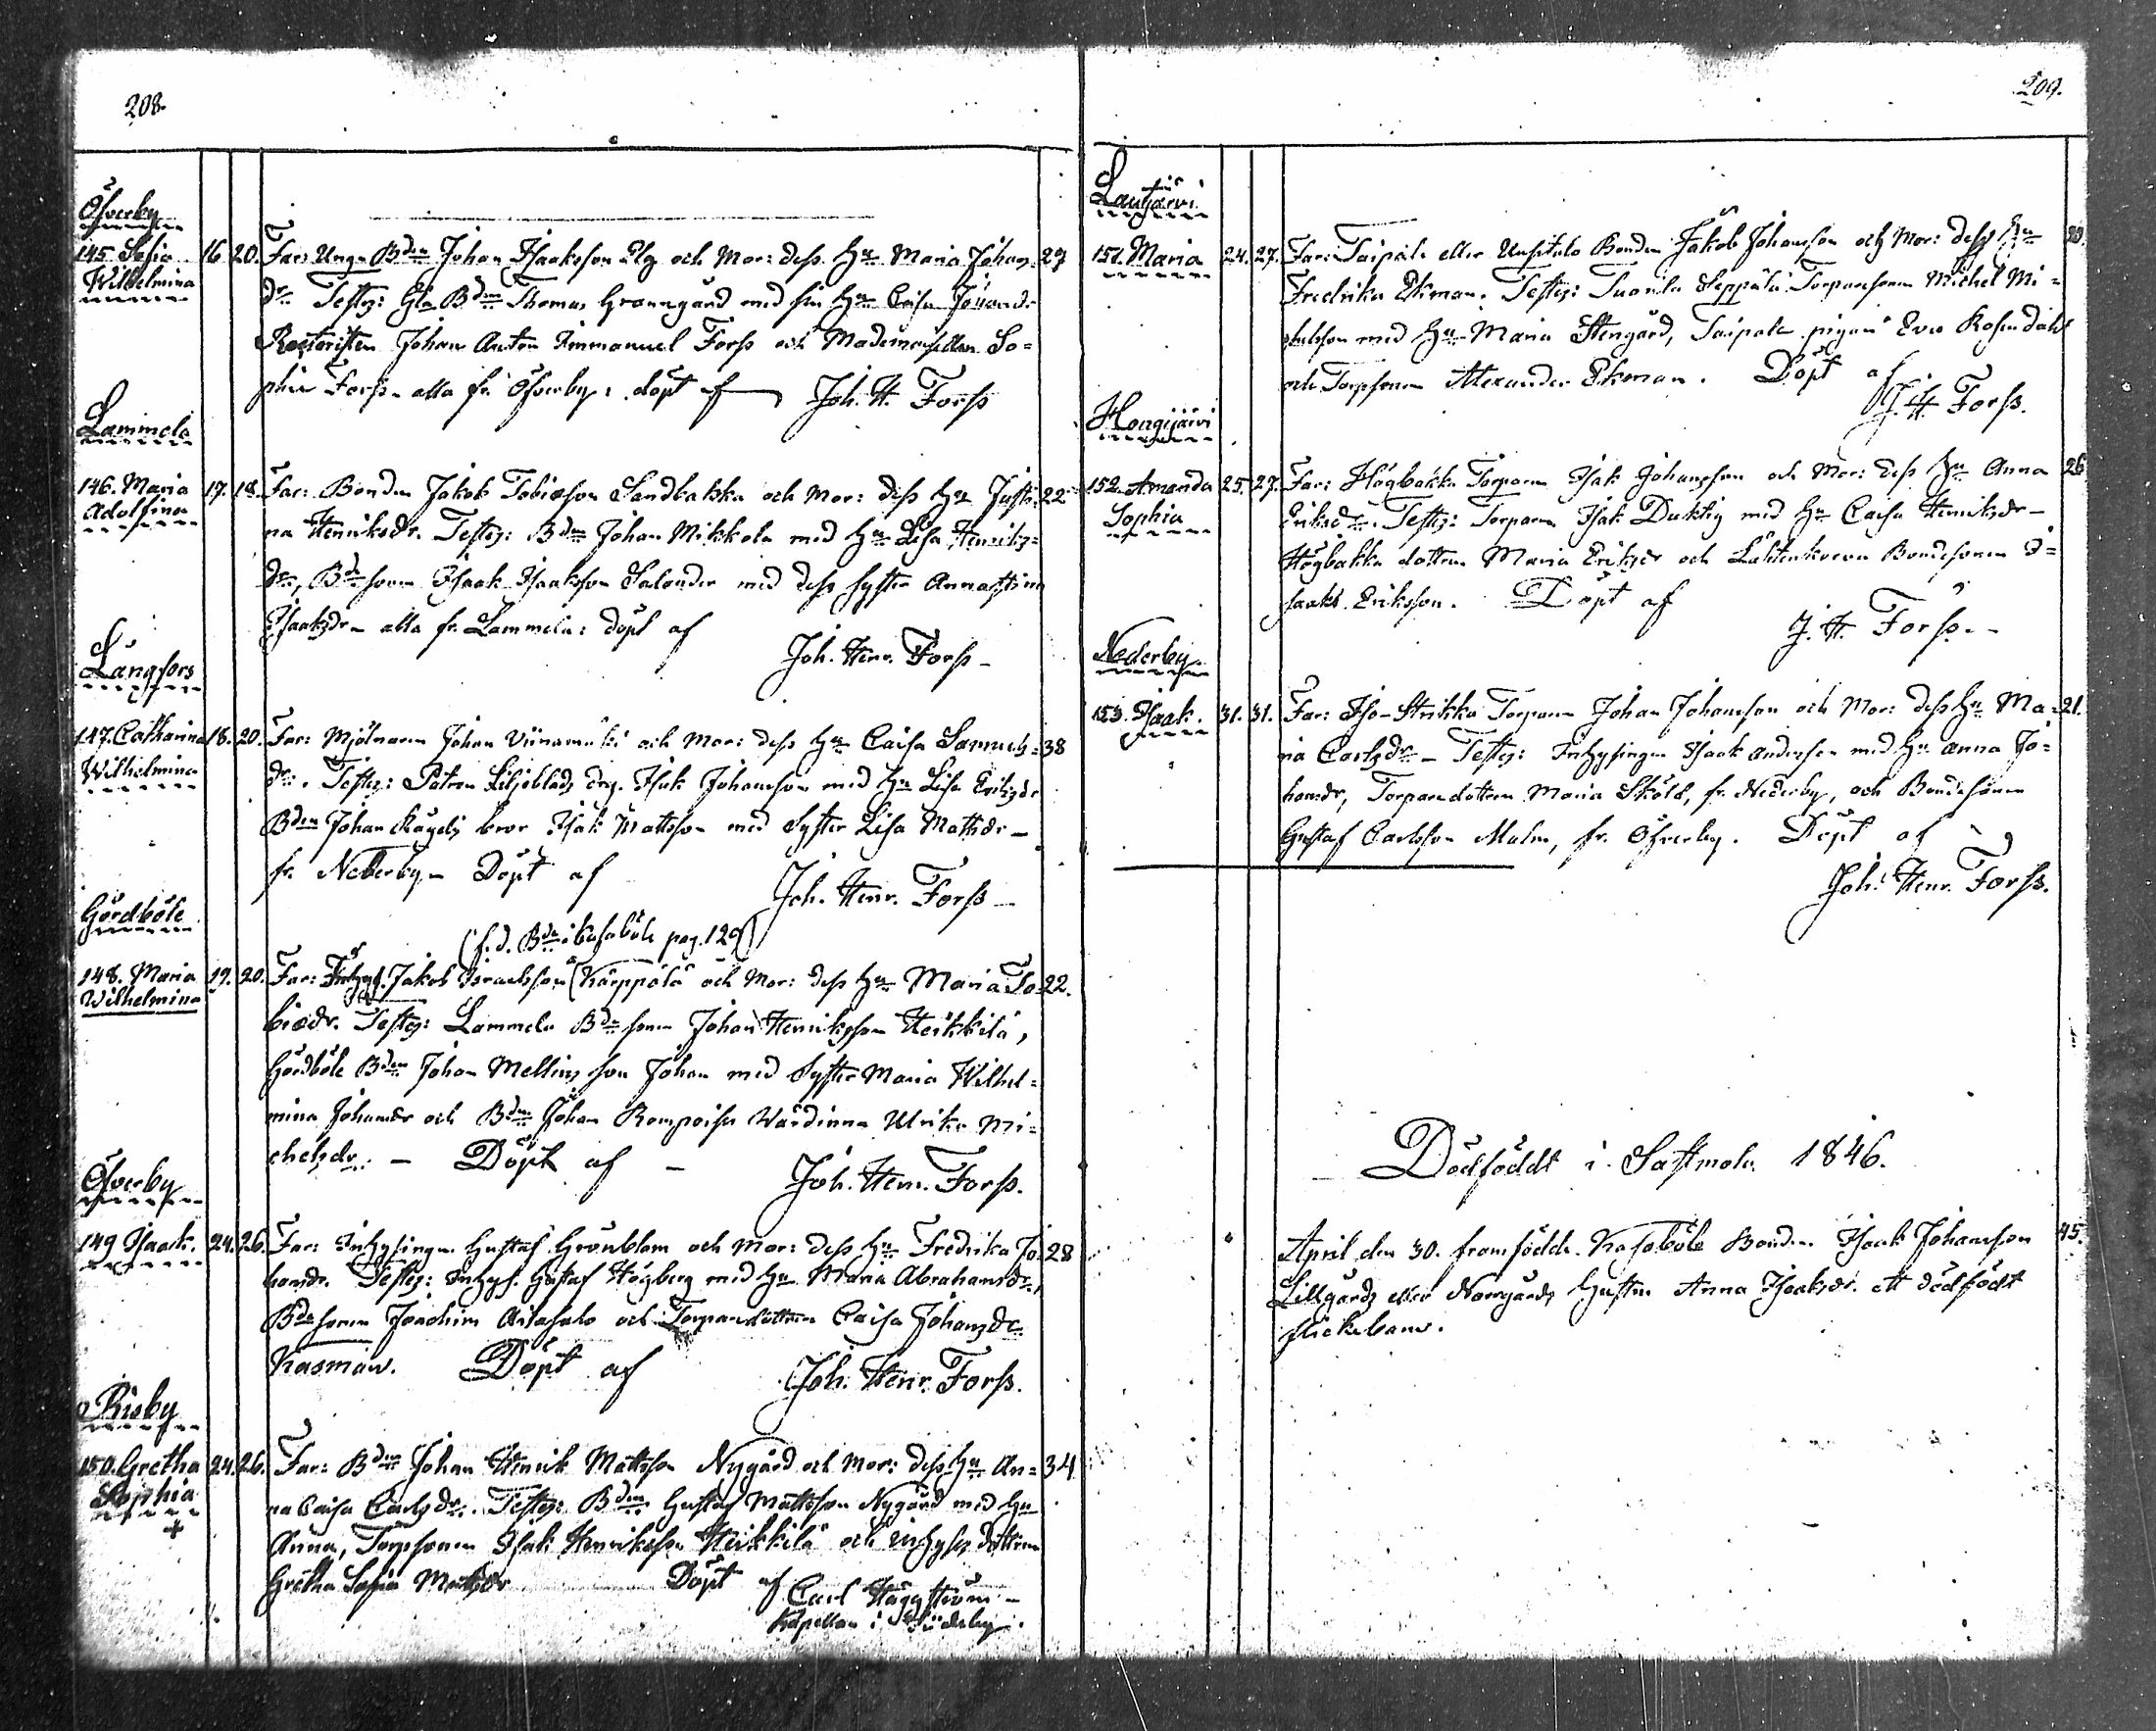 208.
Öfverby
145 Sofia 16 20. Far: Unga Bden Johan Isaaksson Elg och Mor: dess Hu Maria Johans= 27
Wilhelmina dr Testes: Gla Bden Thomas Granngård med sin Hu Caisa Johansdr
Johan Anton Immanuel Forss och Mademoisellen So=
phia Forss - alla fr. Öfverby: döpt af Joh. H. Forss
Lammela
146. Maria 17. 18. Far: Bonden Jakob Tobiasson Sandbakka och Mor: dess Hu Justi= 22
Adolfina na Henriksdr. Testes: Bden Johan Mikkola med Hu Lisa Henriks=
dr, Bdesonen Isaak Isaaksson Salander med dess syster Anna Stina
Isaaksdr - alla fr. Lammela: döpt af
Joh. Henr. Forss -
Långfors
147. Catharina 18. 20. Far: Mjölnaren Johan Viinamäki och Mor: dess Hu Caisa Samuels= 38
Wilhelmina dr. Testes: Patron Liljeblads drg. Isak Johansson med Hu Lisa Eriksdr
Bden Johan Kägels bror Isak Mattsson med Syster Lisa Mattsdr -
fr. Nederby - Döpt af
Joh. Henr. Forss -
Gördböle
(f.d. Bde i Kasaböle pag. 129)
148. Maria 19. 20. Far: Inhys. Jakob Israelsson (Kärppälä och Mor: dess Hu Maria To= 22.
Wilhelmina biædr. Testes: Lammela Bdesonen Johan Henriksson Heikkilä,
Gördböle Bden Johan Mellins son Johan med Syster Maria Wilhel=
mina Johansdr och Bden Johan Rompoisn Värdinna Ulrika Mi=
chelsdr. - Döpt af -
Joh. Henr. Forss.
Öfverby
149 Isaak. 24. 26. Far: Inhysingen Gustaf Grönblom och Mor: dess Hu Fredrika Jo= 28
hansdr. Testes: Inhys. Gustaf Högberg med Hu Maria Abrahamsdr,
Bdesonen Joachim Aitasalo och Torparedottern Caisa Johansdr
Kasman. Döpt af
Joh. Henr. Forss.
Risby
150. Gretha 24. 26. Far: Bden Johan Henrik Mattsson Nygård och Mor: dess Hu An= 34
Sophia na Caisa Carlsdr. Testes: Bden Gustaf Mattsson Nygård med Hu
+ Anna, Torpsonen Isak Henriksson Heikkilä och inhyses dottern
Gretha Sofia Mattsdr Döpt af Carl Häggström -
Kapellan i
209.
Lautjärvi
151. Maria 24. 27. Far: Taipale eller Uusitalo Bonden Jakob Johansson och Mor: dess Hu
Fredrika Ekman. Testes: Tuorila Seppälä Torparesonen Michel Mi=
chelsson med Hu Maria Stengård, Taipale pigan Eva Rosendahl
och Torpsonen Alexander Ekman. Döpt af
J. H. Forss.
Hongijärvi
152. Amanda 25. 27. Far: Högbakka Torparen Isak Johansson och Mor: dess Hu Anna 26
Sophia Eriksdr. Testes: Torparen Isak Duktig med Hu Caisa Henriksdr -
Högbakka dottern Maria Eriksdr och Lähtenkorva Bondesonen I=
saak Eriksson. Döpt af
J. H. Forss. -
Nederby
153. Isaak. 31. 31. Far: Iso-Strikka Torparen Johan Johansson och Mor: dess Hu Ma= 21.
ria Carlsdr - Testes: Inhysingen Isaak Andersson med Hu Anna Jo=
hansdr, Torparedottern Maria Sköld, fr. Nederby, och Bondesonen
Gustaf Carlsson Malm, fr. Öfverby. Döpt af
Joh. Henr. Forss.
Dödföddt i Sastmola 1846.
April den 30. framfödde Kasaböle Bonden Isaak Johansson 45.
Lillgårds eller Norrgårds Hustru Anna Isaksdr. ett dödfödt
flickebarn.